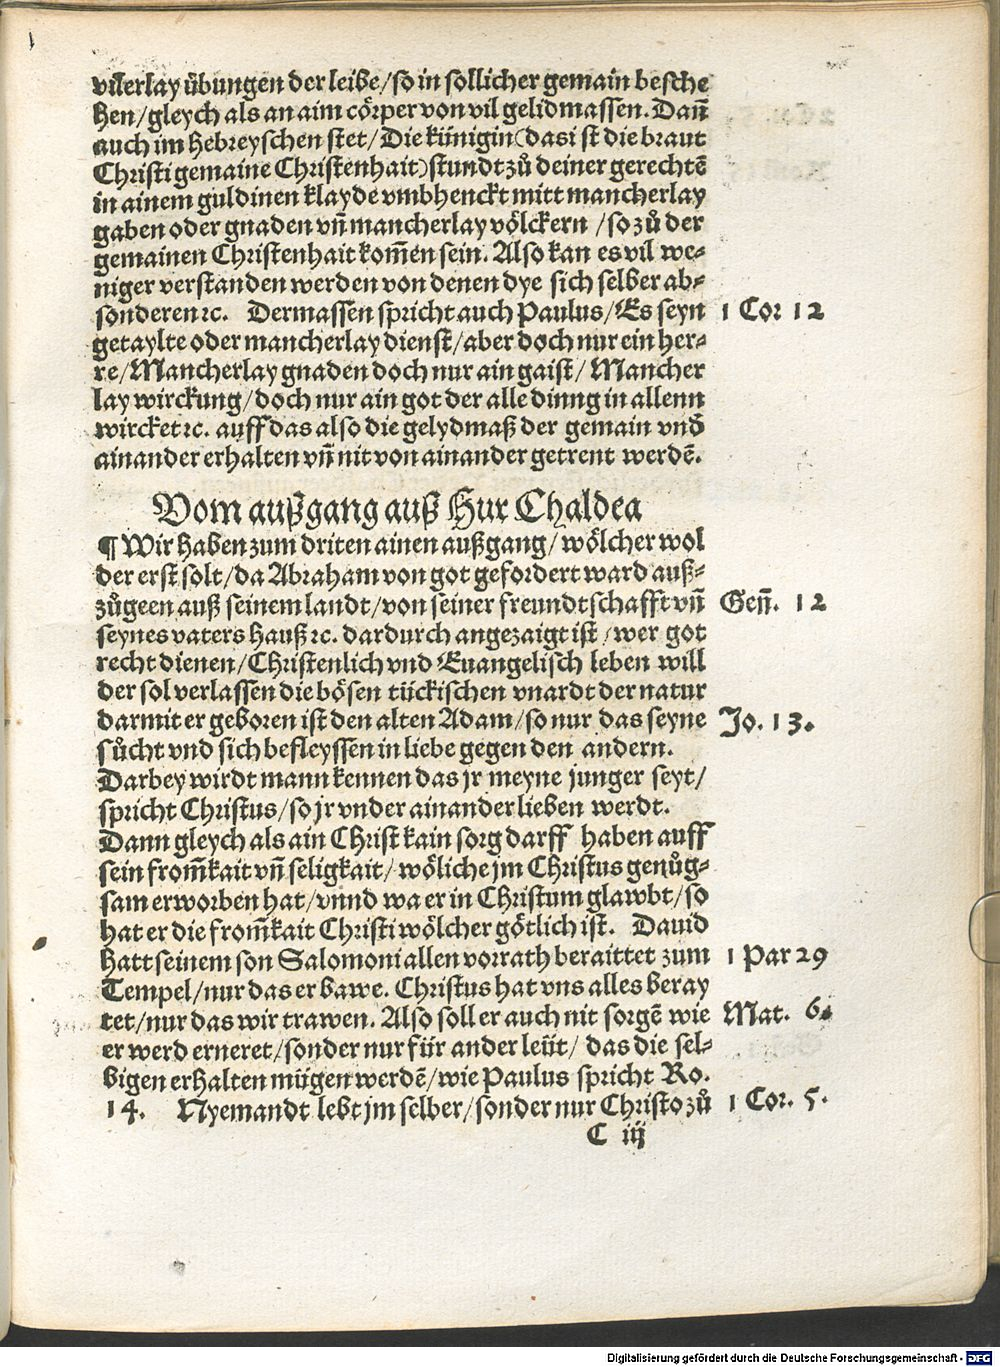 vilerlay übungen der leibe/so in sollicher gemain besche
hen/gleych als an aim cörper von vil gelidmassen. Dañ
auch im Hebreyschen stet/Die künigin(das ist die braut
Christi gemaine Christenhait)stundt zů deiner gerechtē
in ainem guldinen klayde vmbhenckt mitt mancherlay
gaben oder gnaden vñ mancherlay völckern /so zů der
gemainen Christenhait kom̃en sein. Also kan es vil we⸗
niger verstanden werden von denen dye sich selber ab⸗
sonderen ꝛc. Dermassen spricht auch Paulus/Es seyn 1 Cor 12
getaylte oder mancherlay dienst/aber doch nur ein her⸗
re/Mancherlay gnaden doch nur ain gaist/Mancher
lay wirckung/doch nur ain got der alle dinng in allenn
wircket ꝛc. auff das also die gelydmaß der gemain vnd̄
ainander erhalten vñ nit von ainander getrent werdē.
Vom außgang auß Hur Chaldea
¶ Wir haben zum driten ainen außgang/wölcher wol
der erst solt/da Abraham von got gefordert ward auß⸗
zůgeen auß seinem landt/von seiner freundtschafft vñ Geñ. 12
seynes vaters hauß ꝛc. dardurch angezaigt ist/wer got
recht dienen/Christenlich vnd Euangelisch leben will
der sol verlassen die bösen tückischen vnardt der natur
darmit er geboren ist den alten Adam/so nur das seyne Jo. 13.
sůcht vnd sich befleyssen in liebe gegen den andern.
Darbey wirdt mann kennen das jr meyne junger seyt/
spricht Christus/so jr vnder ainander lieben werdt.
Dann gleych als ain Christ kain sorg darff haben auff
sein from̃kait vñ seligkait/wöliche jm Christus genůg⸗
sam erworben hat/vnnd wa er in Christum glawbt/so
hat er die from̃kait Christi wölcher götlich ist. Dauid
hatt seinem son Salomoni allen vorrath beraittet zum 1 Par 29
Tempel/nur das er bawe. Christus hat vns alles beray
tet/nur das wir trawen. Also soll er auch nit sorgē wie Mat. 6.
er werd erneret/sonder nur für ander leüt/ das die sel⸗
bigen erhalten mügen werdē/wie Paulus spricht Ro.
14. Nyemandt lebt jm selber/sonder nur Christo zů 1 Cor. 5.
C iij
Digitalisierung gefördert durch die Deutsche Forschungsgemeinschaft - DFG